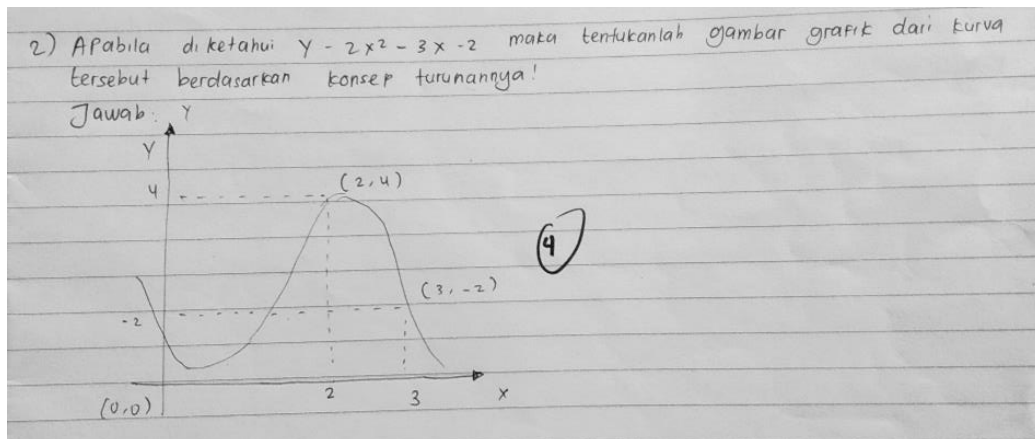 2) Apabila diketahui y - 2x² - 3x - 2 maka tentukanlah gambar grafik dari kurva
tersebut berdasarkan konsep turunannya!
Jawab: Y
Y
4
(2,4)
4
(3,-2)
-2
2
3
X
(0,0)